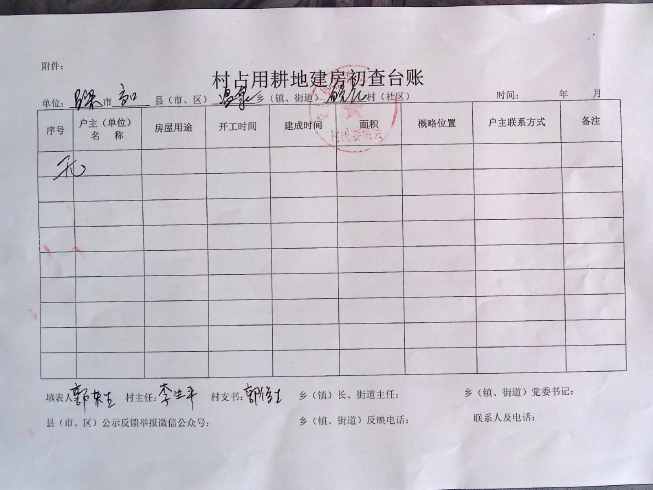 附件：
村占用耕地建房初查台账
单位：吕梁市 交口 县（市、区） 温泉乡（镇、街道） 村（社区） 时间： 年 月
序号 户主（单位）名 称 房屋用途 开工时间 建成时间 面积 概略位置 户主联系方式 备注
无
填表人 村主任：李生平 村支书： 乡（镇）长、街道主任： 乡（镇、街道）党委书记：
县（市、区）公示反馈举报微信公众号： 乡（镇、街道）反映电话： 联系人及电话：